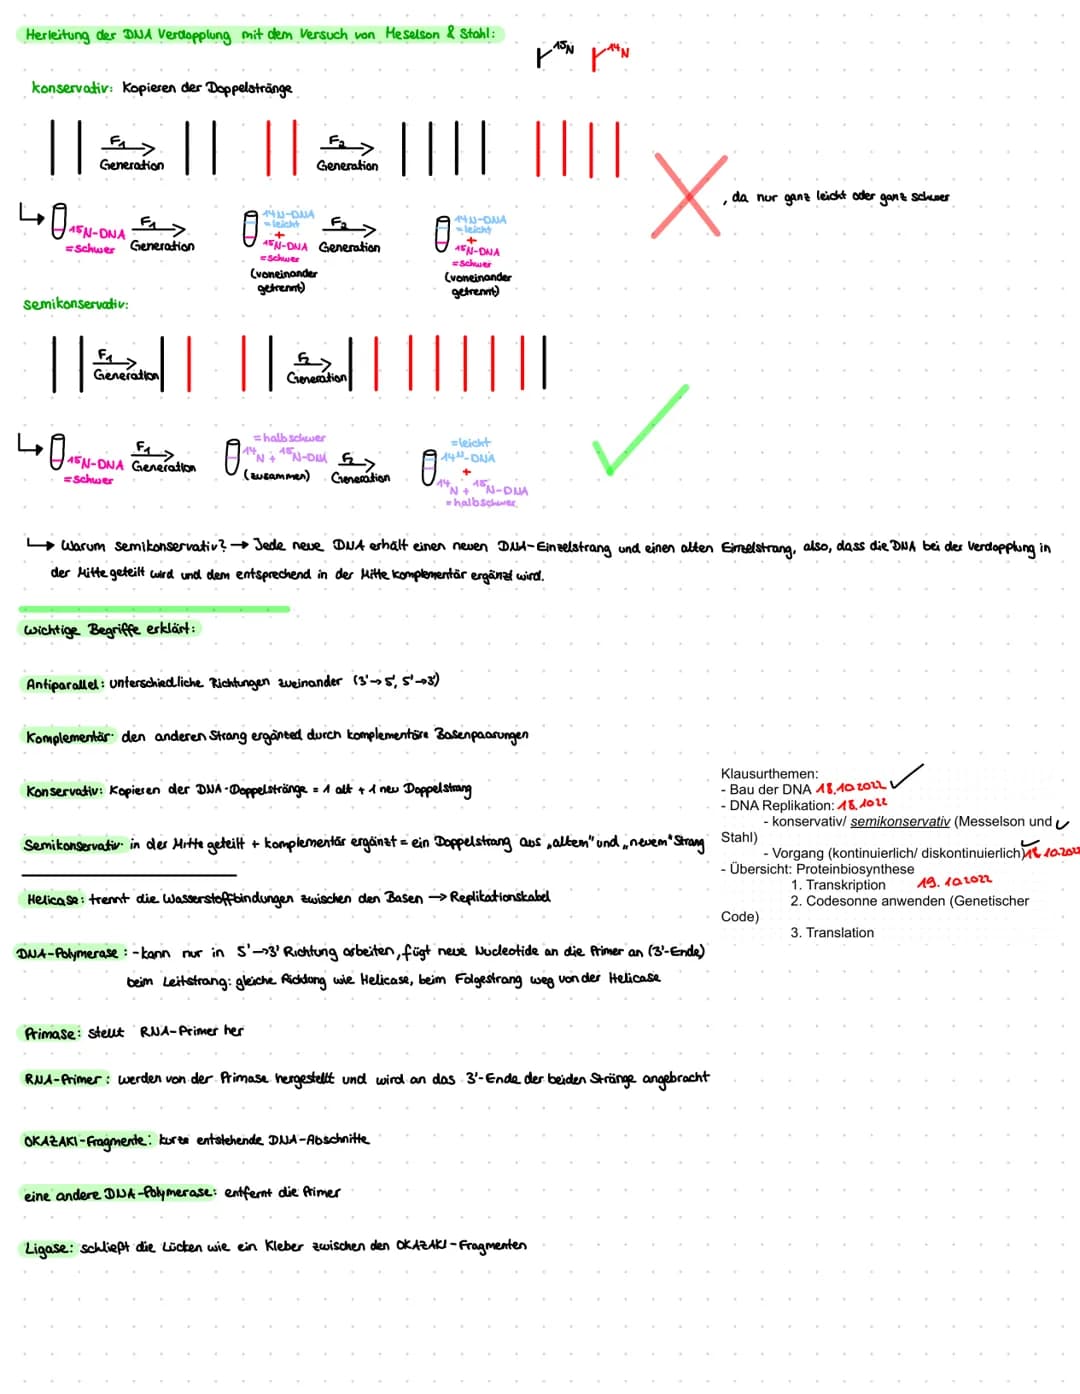 Herleitung der DNA Verdopplung mit dem Versuch von Meselson & Stahl:
15N 14N
konservativ: Kopieren der Doppelstränge
F1 Generation
F2 Generation
, da nur ganz leicht oder ganz schwer
15N-DNA
=schwer
F1 Generation
14N-DNA
=leicht
+
15N-DNA
=schwer
(voneinander
getrennt)
F2 Generation
14N-DNA
=leicht
+
15N-DNA
=schwer
(voneinander
getrennt)
semikonservativ:
F1 Generation
F2 Generation
15N-DNA
=schwer
F1 Generation
=halbschwer
14N + 15N-DNA
(zusammen)
F2 Generation
=leicht
14N-DNA
+
14N + 15N-DNA
=halbschwer
Warum semikonservativ? → Jede neue DNA erhält einen neuen DNA-Einzelstrang und einen alten Einzelstrang, also, dass die DNA bei der Verdopplung in
der Mitte geteilt wird und dem entsprechend in der Mitte komplementär ergänzt wird.
wichtige Begriffe erklärt:
Antiparallel: unterschiedliche Richtungen zueinander (3'→5', 5'→3')
Komplementär: den anderen Strang ergänzed durch komplementäre Basenpaarungen
Konservativ: Kopieren der DNA-Doppelstränge = 1 alt + 1 neu Doppelstrang
Semikonservativ: in der Mitte geteilt + komplementär ergänzt = ein Doppelstrang aus „altem" und „neuem" Strang
Helicase: trennt die Wasserstoffbindungen zwischen den Basen → Replikationskabel
DNA-Polymerase: -kann nur in 5'→3' Richtung arbeiten, fügt neue Nucleotide an die Primer an (3'-Ende)
beim Leitstrang: gleiche Richtung wie Helicase, beim Folgestrang weg von der Helicase
Primase: stellt RNA-Primer her
RNA-Primer: werden von der Primase hergestellt und wird an das 3'-Ende der beiden Stränge angebracht
OKAZAKI-Fragmente: kurze entstehende DNA-Abschnitte
eine andere DNA-Polymerase: entfernt die Primer
Ligase: schließt die Lücken wie ein Kleber zwischen den OKAZAKI-Fragmenten
Klausurthemen:
- Bau der DNA 18.10.2022
- DNA Replikation: 18.1022
- konservativ/ semikonservativ (Messelson und
Stahl)
- Vorgang (kontinuierlich/ diskontinuierlich) 18.10.2022
- Übersicht: Proteinbiosynthese
1. Transkription 19.10.2022
2. Codesonne anwenden (Genetischer
Code)
3. Translation